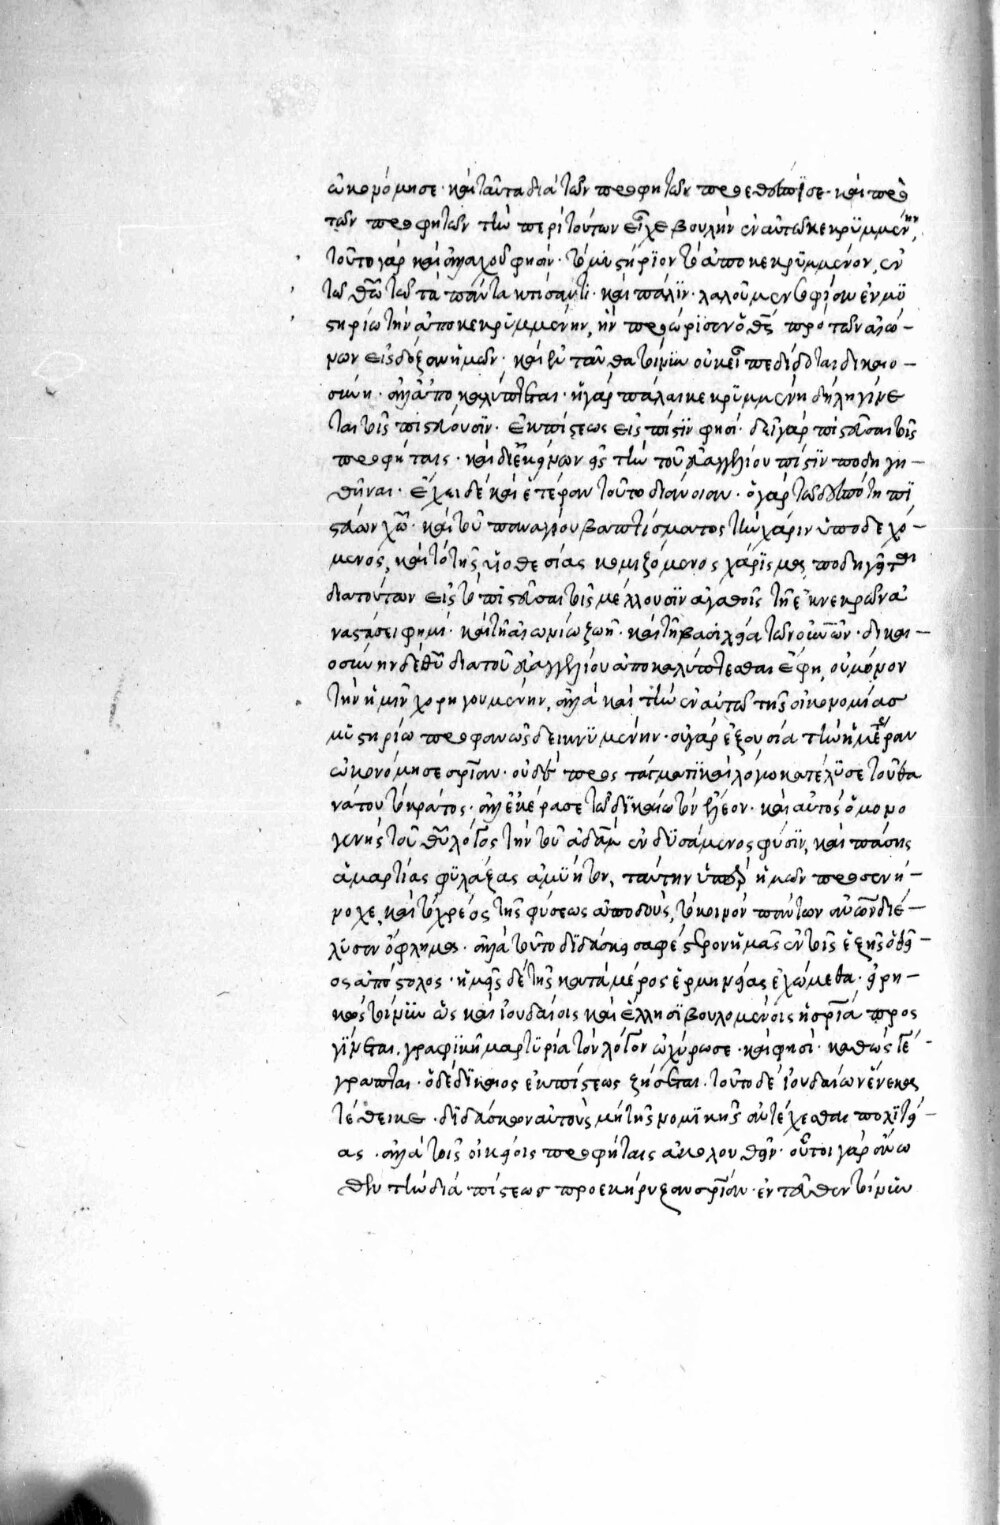 ὠκονόμησε· καὶ ταῦτα διὰ τῶν προφητῶν προεθέσπισε· καὶ πρὸ
τῶν προφητῶν τὴν περὶ τούτων εἶχε βουλὴν ἐν αὐτῷ κεκρυμμένην,
τοῦτο γὰρ καὶ ἀλλαχοῦ φησίν· τὸ μυστήριον τὸ ἀποκεκρυμμένον, ἐν
τῷ θῶ τῷ τὰ πάντα κτίσαντι· καὶ πάλιν· λαλοῦμεν σοφίαν ἐν μυ
στηρίῳ τὴν ἀποκεκρυμμένην, ἣν προώρισεν ὁ θς πρὸ τῶν αἰώ-
νων εἰς δόξαν ἡμῶν· καὶ ἐνταῦθα τοίνυν οὐκ εἶπε δέδοται δικαιο-
σύνη· ἀλλὰ ἀποκαλύπτεται· ἡ γὰρ πάλαι κεκρυμμένη δήλη γίνε
ται τοῖς πιστεύουσιν· ἐκ πίστεως εἰς πίστιν φησί· δεῖ γὰρ πιστεῦσαι τοῖς
προφήταις· καὶ δι' ἐκείνων εἰς τὴν τοῦ εὐαγγελίου πίστιν ποδηγη-
θῆναι· ἔχει δὲ καὶ ἑτέραν τοῦτο διάνοιαν· ὁ γὰρ τῷ δεσπότῃ πι
στεύων χῶ· καὶ τοῦ παναγίου βαπτίσματος τὴν χάριν ὑποδεχό-
μενος, καὶ τὸ τῆς υἱοθεσίας κομιζόμενος χάρισμα, ποδηγεῖται
διὰ τούτων εἰς τὸ πιστεῦσαι τοῖς μέλλουσιν ἀγαθοῖς τῇ ἐκ νεκρῶν ἀ
ναστάσει φημί· καὶ τῇ αἰωνίῳ ζωῇ· καὶ τῇ βασιλείᾳ τῶν οὐνῶν· δικαι-
οσύνην δὲ θῦ διὰ τοῦ εὐαγγελίου ἀποκαλύπτεσθαι ἔφη, οὐ μόνον
τὴν ἡμῖν χορηγουμένην, ἀλλὰ καὶ τὴν ἐν αὐτῷ τῆς οἰκονομίας
μυστηρίῳ προφανῶς δεικνυμένην· οὐ γὰρ ἐξουσίᾳ τὴν ἡμετέραν
ὠκονόμησε σρίαν· οὐδὲ προστάγματι καὶ λόγῳ κατέλυσε τοῦ θα
νάτου τὸ κράτος· ἀλλ' ἐκέρασε τῷ δικαίῳ τὸν ἔλεον· καὶ αὐτὸς ὁ μονο
γενὴς τοῦ θῦ λόγος τὴν τοῦ ἀδὰμ ἐνδυσάμενος φύσιν, καὶ πάσης
ἁμαρτίας φυλάξας ἀμύητον, ταύτην ὑπὲρ ἡμῶν προσενή-
νοχε, καὶ τὸ χρέος τῆς φύσεως ἀποδούς, τὸ κοινὸν πάντων ἀνῶν διέ-
λυσεν ὄφλημα· ἀλλὰ τοῦτο διδάσκει σαφέστερον ἡμᾶς ἐν τοῖς ἑξῆς ὁ θεῖ-
ος ἀπόστολος· ἡμεῖς δὲ τῆς κατὰ μέρος ἑρμηνείας ἐχώμεθα· εἰρη-
κὼς τοίνυν ὡς καὶ ἰουδαίοις καὶ ἕλλησι βουλομένοις ἡ σρία προς
γίνεται. γραφικῇ μαρτυρίᾳ τὸν λόγον ὠχύρωσε· καί φησι· καθὼς γέ-
γραπται· ὁ δὲ δίκαιος ἐκ πίστεως ζήσεται. τοῦτο δὲ ἰουδαίων ἕνεκα
τέθεικε· διδάσκων αὐτοὺς μὴ τῆς νομικῆς ἀντέχεσθαι πολιτεί-
ας· ἀλλὰ τοῖς οἰκείοις προφήταις ἀκολουθεῖν· οὗτοι γὰρ ἄνω
θεν τὴν διὰ πίστεως προεκήρυξαν σρίαν· ἐνταῦθα τοίνυν